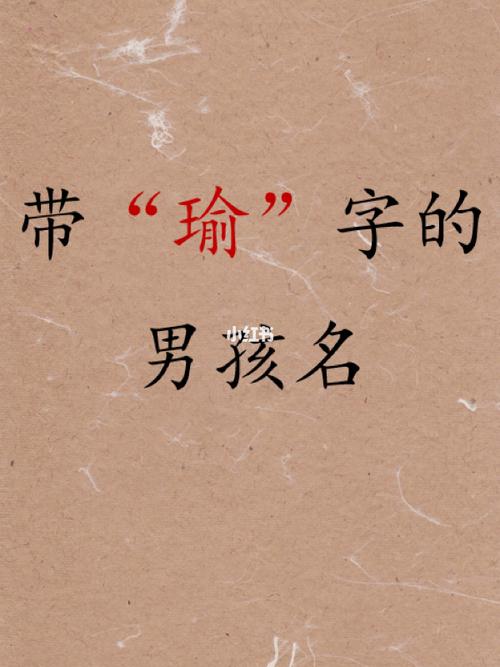 带“瑜”字的
男孩名
小红书